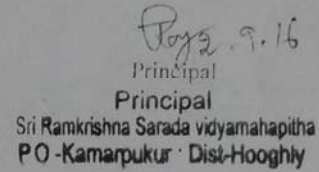 2.9.16
Principal
Principal
Sri Ramkrishna Sarada vidyamahapitha
PO-Kamarpukur · Dist-Hooghly